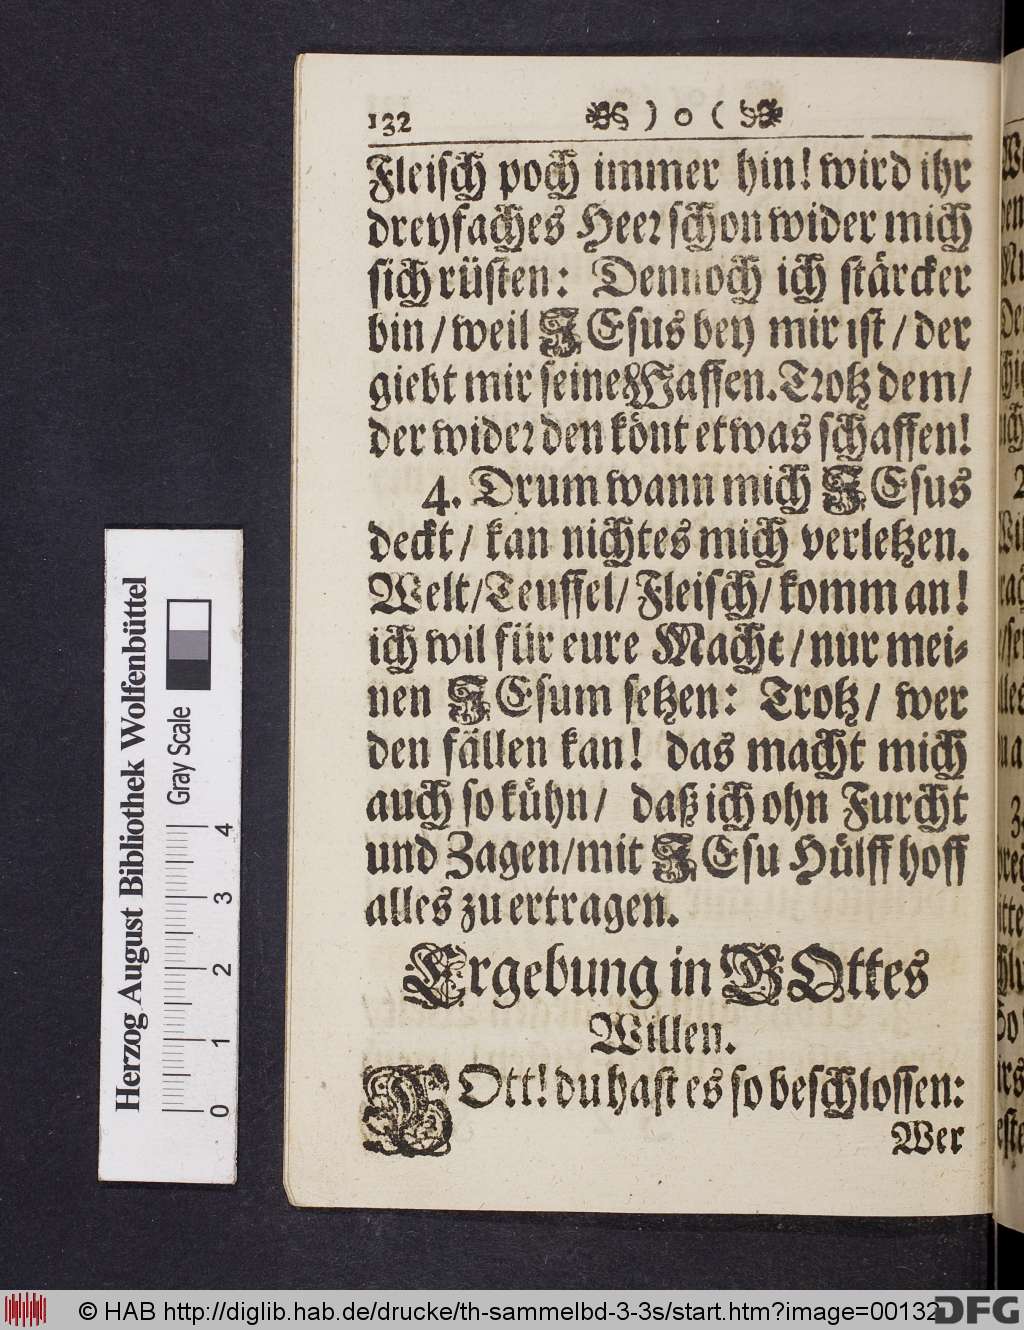 132 ) o (
Fleisch poch immer hin! wird ihr
dreyfaches Heer schon wider mich
sich rüsten: Dennoch ich stärcker
bin / weil JEsus bey mir ist / der
giebt mir seine Waffen. Trotz dem /
der wider den könt etwas schaffen!
4. Drum wann mich JEsus
deckt / kan nichtes mich verletzen.
Welt / Teuffel / Fleisch / komm an!
ich wil für eure Macht / nur mei-
nen JEsum setzen: Trotz / wer
den fällen kan! das macht mich
auch so kühn / daß ich ohn Furcht
und Zagen / mit JEsu Hülff hoff
alles zu ertragen.
Ergebung in GOttes
Willen.
GOtt! du hast es so beschlossen:
Wer
Herzog August Bibliothek Wolfenbüttel
Gray Scale
0 1 2 3 4
© HAB http://diglib.hab.de/drucke/th-sammelbd-3-3s/start.htm?image=00132
DFG